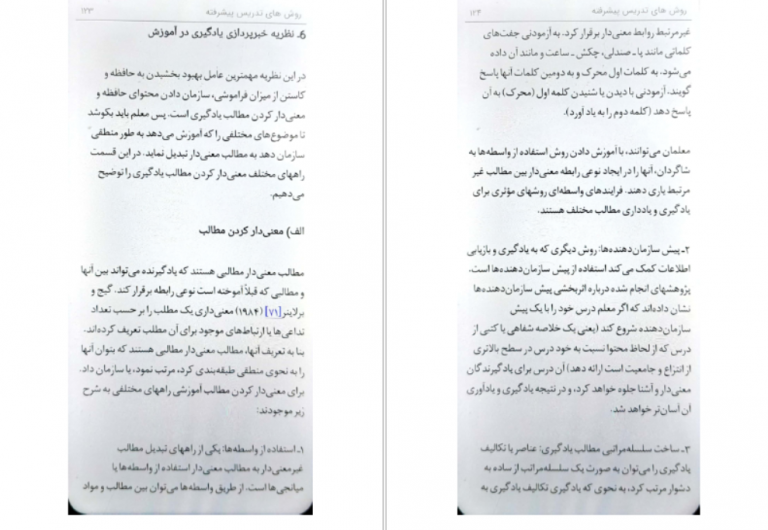 روش های تدریس پیشرفته ۱۲۳
6ـ نظریه خبرپردازی یادگیری در آموزش
در این نظریه مهمترین عامل بهبود بخشیدن به حافظه و
کاستن از میزان فراموشی، سازمان دادن محتوای حافظه و
معنی‌دار کردن مطالب یادگیری است. پس معلم باید بکوشد
تا موضوع‌های مختلفی را که آموزش می‌دهد به طور منطقی
سازمان دهد به مطالب معنی‌دار تبدیل نماید. در این قسمت
راههای مختلف معنی‌دار کردن مطالب یادگیری را توضیح
می‌دهیم.
الف) معنی‌دار کردن مطالب
مطالب معنی‌دار مطالبی هستند که یادگیرنده می‌تواند بین آنها
و مطالبی که قبلاً آموخته است نوعی رابطه برقرار کند. گیج و
برلاینر[۷۱] (۱۹۸۴) معنی‌داری یک مطلب را بر حسب تعداد
تداعی‌ها یا ارتباط‌های موجود برای آن مطلب تعریف کرده‌اند.
بنا به تعریف آنها، مطالب معنی‌دار مطالبی هستند که بتوان آنها
را به نحوی منطقی طبقه‌بندی کرد، مرتب نمود، یا سازمان داد.
برای معنی‌دار کردن مطالب آموزشی راههای مختلفی به شرح
زیر موجودند:
۱ـ استفاده از واسطه‌ها: یکی از راههای تبدیل مطالب
غیرمعنی‌دار به مطالب معنی‌دار استفاده از واسطه‌ها یا
میانجی‌ها است. از طریق واسطه‌ها می‌توان بین مطالب و مواد
روش های تدریس پیشرفته ۱۲۴
غیرمرتبط روابط معنی‌دار برقرار کرد. به آزمودنی جفت‌های
کلماتی مانند پا ـ صندلی، چکش ـ ساعت و مانند آن داده
می‌شود. به کلمات اول محرک و به دومین کلمات آنها پاسخ
گویند. آزمودنی با دیدن یا شنیدن کلمه اول (محرک) به آن
پاسخ دهد (کلمه دوم را به یاد آورد).
معلمان می‌توانند، با آموزش دادن روش استفاده از واسطه‌ها به
شاگردان، آنها را در ایجاد نوعی رابطه معنی‌دار بین مطالب غیر
مرتبط یاری دهند. فرایندهای واسطه‌ای روشهای مؤثری برای
یادگیری و یادداری مطالب مختلف هستند.
۲ـ پیش سازمان‌دهنده‌ها: روش دیگری که به یادگیری و بازیابی
اطلاعات کمک می‌کند استفاده از پیش سازمان‌دهنده‌ها است.
پژوهشهای انجام شده درباره اثربخشی پیش سازمان‌دهنده‌ها
نشان داده‌اند که اگر معلم درس خود را با یک پیش
سازمان‌دهنده شروع کند (یعنی یک خلاصه شفاهی یا کتبی از
درس که از لحاظ محتوا نسبت به خود درس در سطح بالاتری
از انتزاع و جامعیت است ارائه دهد) آن درس برای یادگیرندگان
معنی‌دار و آشنا جلوه خواهد کرد، و در نتیجه یادگیری و یادآوری
آن آسان‌تر خواهد شد.
۳ـ ساخت سلسله‌مراتبی مطالب یادگیری: عناصر یا تکالیف
یادگیری را می‌توان به صورت یک سلسله‌مراتب از ساده به
دشوار مرتب کرد، به نحوی که یادگیری تکالیف یادگیری به